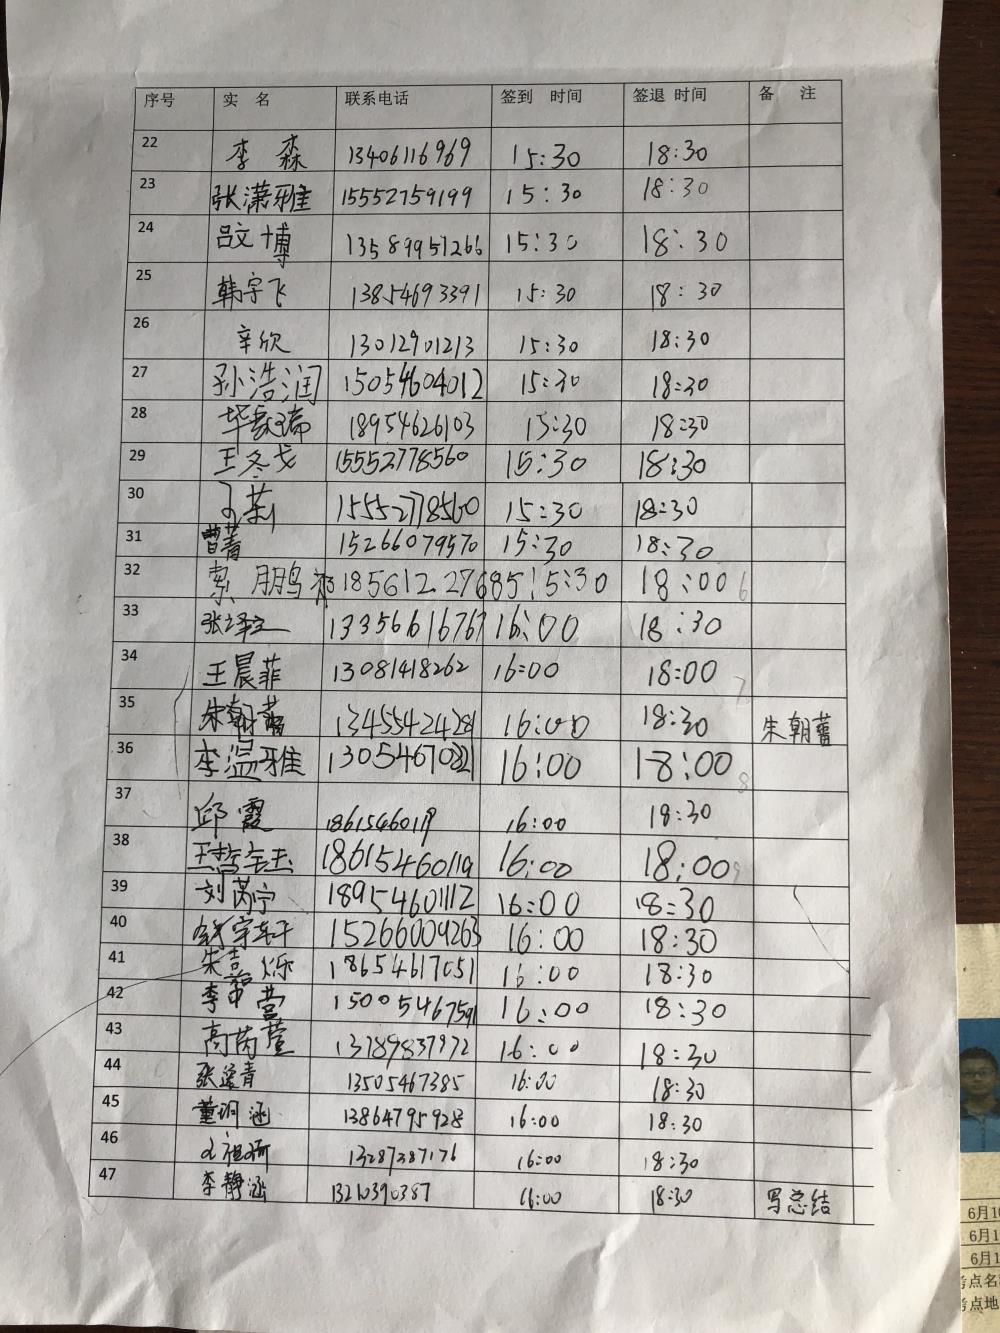 序号 实 名 联系电话 签到 时间 签退 时间 备 注
22 李 森 13406116969 15:30 18:30
23 张潇雅 15552759199 15:30 18:30
24 吕文博 13589951266 15:30 18:30
25 韩宇飞 13854693391 15:30 18:30
26 辛欣 13012901213 15:30 18:30
27 孙浩润 15054604012 15:30 18:30
28 18954626103 15:30 18:30
29 王冬戈 15552778560 15:30 18:30
30 15552778560 15:30 18:30
31 曹菁 15266079570 15:30 18:30
32 索朋鸟 18561227685 15:30 18:00 6
33 张泽文 13356616767 16:00 18:30
34 王晨菲 13081418262 16:00 18:00 7
35 朱朝蕾 13455424281 16:00 18:30 朱朝蕾
36 李温雅 16:00 18:00 8
37 邱霞 16:00 18:30
38 18615460119 16:00 18:00 9
39 刘芮宁 18954601112 16:00 18:30
40 15266009263 16:00 18:30
41 朱嘉烁 18654617051 16:00 18:30
42 15005467591 16:00 18:30
43 高芮萱 13789837972 16:00 18:30
44 13505467385 16:00 18:30
45 董玥涵 13864795928 16:00 18:30
46 13287387176 16:00 18:30
47 李静涵 13210390387 16:00 18:30 写总结
6月10
6月1
6月1
考点名
考点地